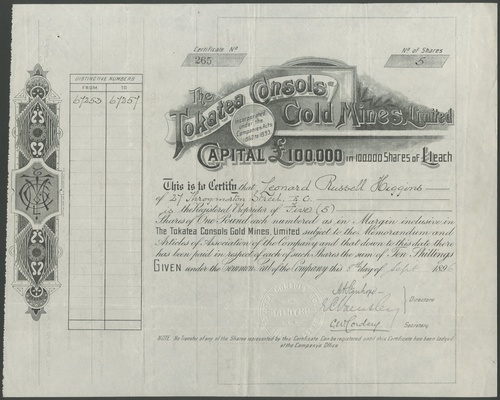 Certificate No
265
No of Shares
5
DISTINCTIVE NUMBERS
FROM TO
67253 67257
The
Tokatea Consols
Gold Mines, Limited
Incorporated
under the
Companies Acts
1862 to 1893
CAPITAL £100,000 IN 100000 Shares of £1 each
This is to Certify that Leonard Russell Higgons
of 27 Throgmorton Street, E.C.
is the Registered Proprietor of Five (5)
Shares of One Pound each numbered as in Margin inclusive in
The Tokatea Consols Gold Mines, Limited subject to the Memorandum and
Articles of Association of the Company and that down to this date there
has been paid in respect of each of such Shares the sum of Ten Shillings
GIVEN under the Common Seal of the Company this 8th day of Sept 1896
Directors
Secretary
NOTE. No transfer of any of the Shares represented by this Certificate can be registered until this Certificate has been lodged
at the Company's Office